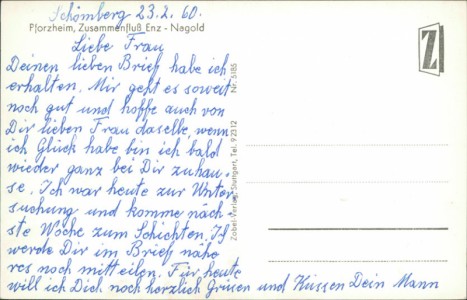 Schömberg 23.2.60.
Pforzheim, Zusammenfluß Enz - Nagold
Liebe Frau
Deinen lieben Brief habe ich
erhalten. Mir geht es soweit
noch gut und hoffe auch von
Dir lieben Frau daselbe, wenn
ich Glück habe bin ich bald
wieder ganz bei Dir zuhau-
se. Ich war heute zur Unter
suchung und komme näch
ste Woche zum Schichten. Ich
werde Dir im Brief nähe
res noch mitteilen. Für heute
will ich Dich noch herzlich Grüsen und Küssen Dein Mann
Zobel-Verlag, Stuttgart, Tel. 92312 Nr. 5185
Z